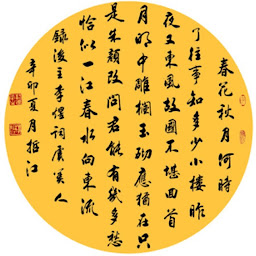 春花秋月何時
了往事知多少小樓昨
夜又東風故國不堪回首
月明中雕欄玉砌應猶在只
是朱顏改問君能有幾多愁
恰似一江春水向東流
錄後主李煜詞虞美人
辛卯夏月振江